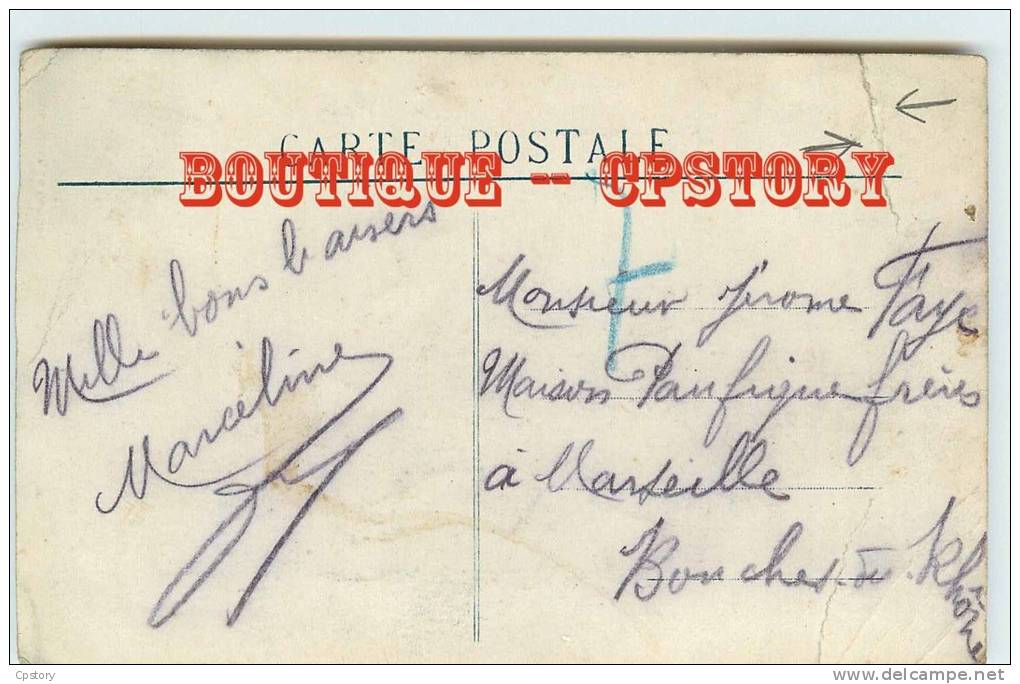 CARTE POSTALE
BOUTIQUE -- CPSTORY
Mille bons baisers
Marceline
Monsieur Jérome Faye
Maison Paufique frères
à Marseille
Bouches-du-Rhône
Cpstory
delcampe.net